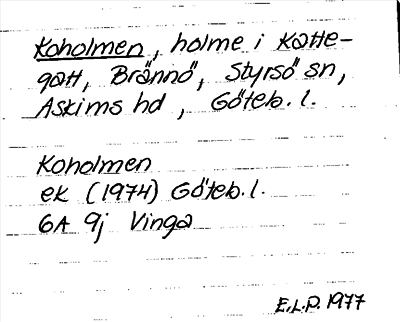 Koholmen, holme i Katte-
gatt, Brännö, Styrsö sn,
Askims hd, Göteb. l.
Koholmen
ek (1974) Göteb. l.
6A 9j Vinga
E.L.P. 1977